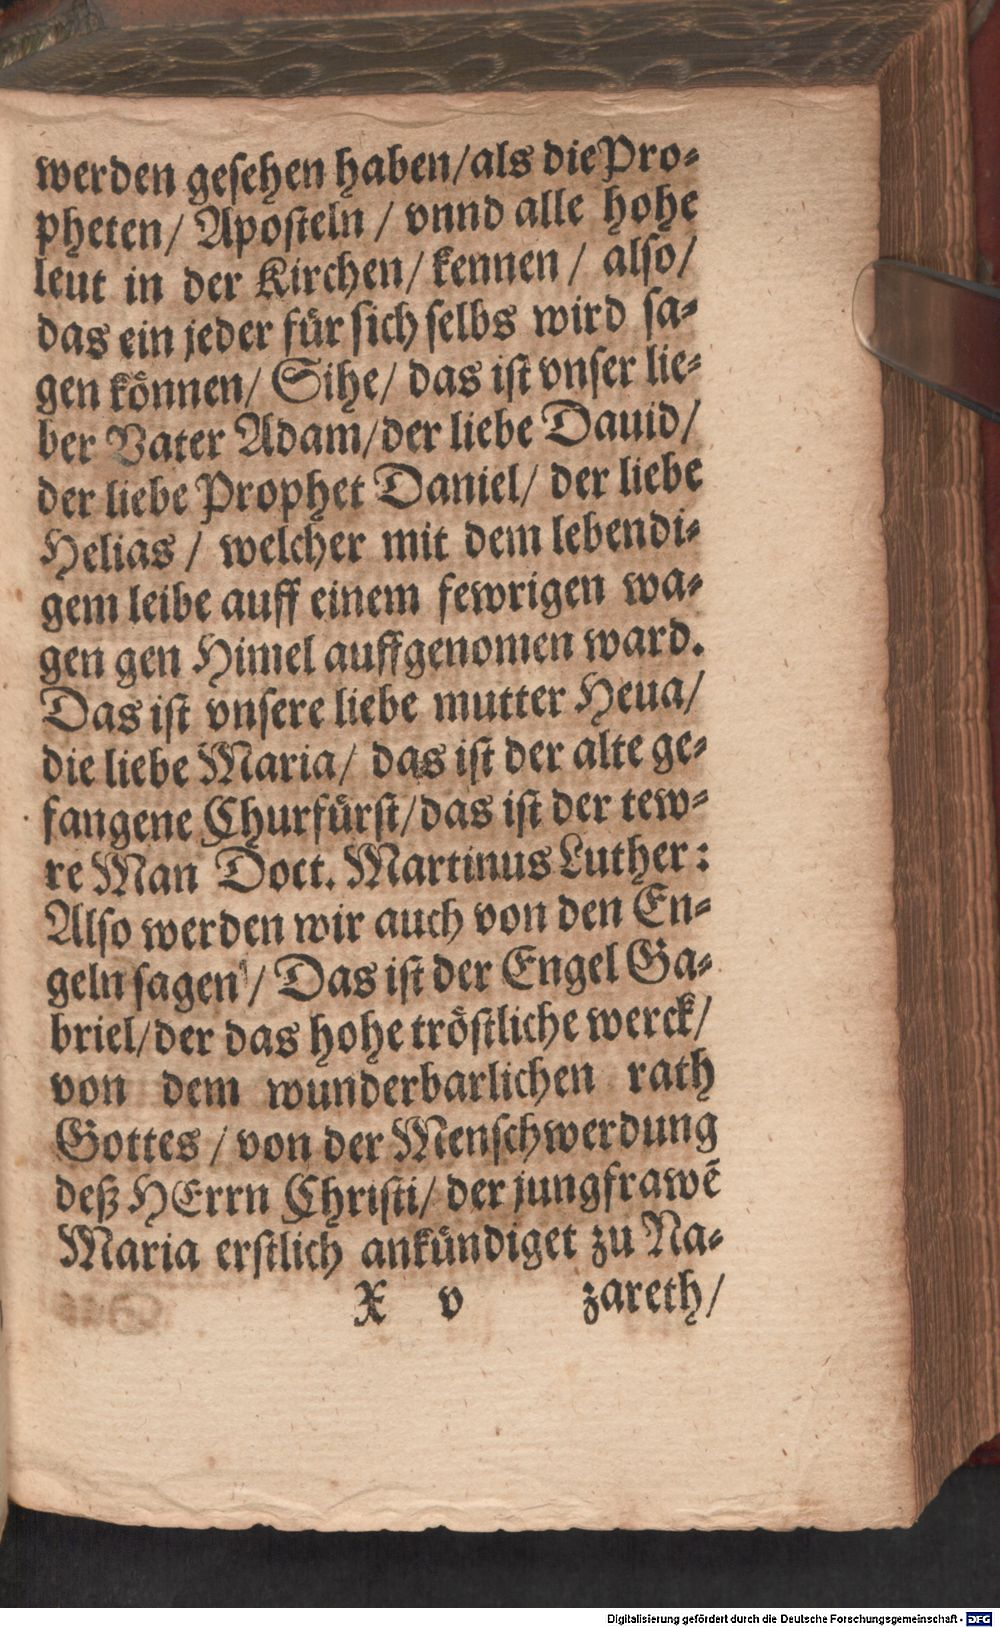 werden gesehen haben/als die Pro-
pheten/ Aposteln / vnnd alle hohe
leut in der Kirchen/ kennen / also/
das ein jeder für sich selbs wird sa-
gen können/ Sihe/ das ist vnser lie-
ber Vater Adam/der liebe Dauid/
der liebe Prophet Daniel/ der liebe
Helias / welcher mit dem lebendi-
gem leibe auff einem fewrigen wa-
gen gen Himel auffgenomen ward.
Das ist vnsere liebe mutter Heua/
die liebe Maria/ das ist der alte ge-
fangene Churfürst/das ist der tew-
re Man Doct. Martinus Luther:
Also werden wir auch von den En-
geln sagen / Das ist der Engel Ga-
briel/der das hohe tröstliche werck/
von dem wunderbarlichen rath
Gottes / von der Menschwerdung
deß HErrn Christi/ der jungfrawẽ
Maria erstlich ankündiget zu Na-
X v zareth/
Digitalisierung gefördert durch die Deutsche Forschungsgemeinschaft - DFG